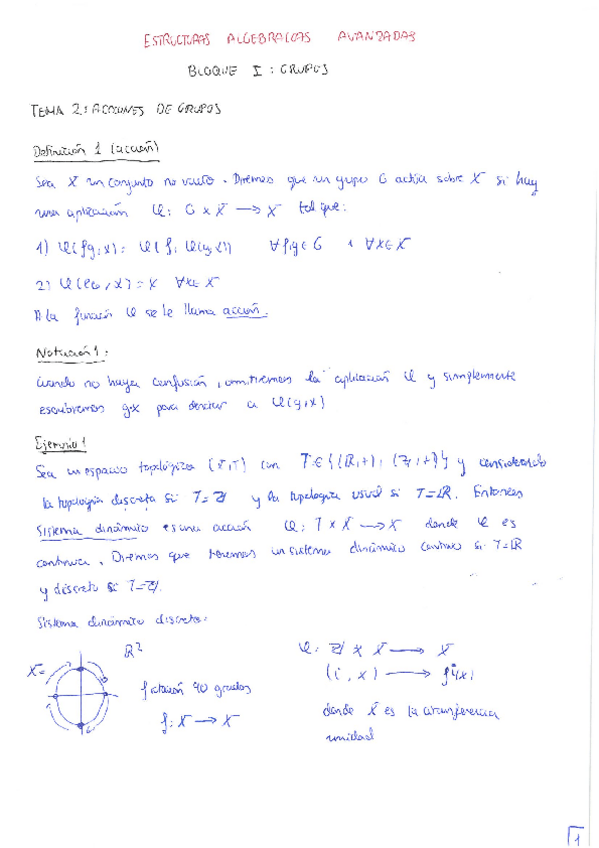 ESTRUCTURAS ALGEBRAICAS AVANZADAS
BLOQUE I: GRUPOS
TEMA 2: ACCIONES DE GRUPOS
Definición 1 (acción)
Sea X un conjunto no vacío. Diremos que un grupo G actúa sobre X si hay
una aplicación φ: G x X → X tal que:
1) φ(fg,x) = φ(f, φ(g,x)) ∀f,g∈G ∀x∈X
2) φ(e_G,x) = x ∀x∈X
A la función φ se le llama acción.
Notación 1:
Cuando no haya confusión, omitiremos la aplicación φ y simplemente
escribiremos g·x para denotar a φ(g,x)
Ejemplo 1
Sea un espacio topológico (X,T) con T∈{(ℝ,+), (ℤ,+)} y considerando
la topología discreta si T=ℤ y la topología usual si T=ℝ. Entonces
sistema dinámico es una acción φ: T x X → X donde φ es
continua. Diremos que tenemos un sistema dinámico continuo si T=ℝ
y discreto si T=ℤ.
Sistema dinámico discreto:
X= ℝ² φ: ℤ x X → X
f rotación 90 grados (i,x) → fⁱ(x)
f: X → X donde X es la circunferencia
unidad
1